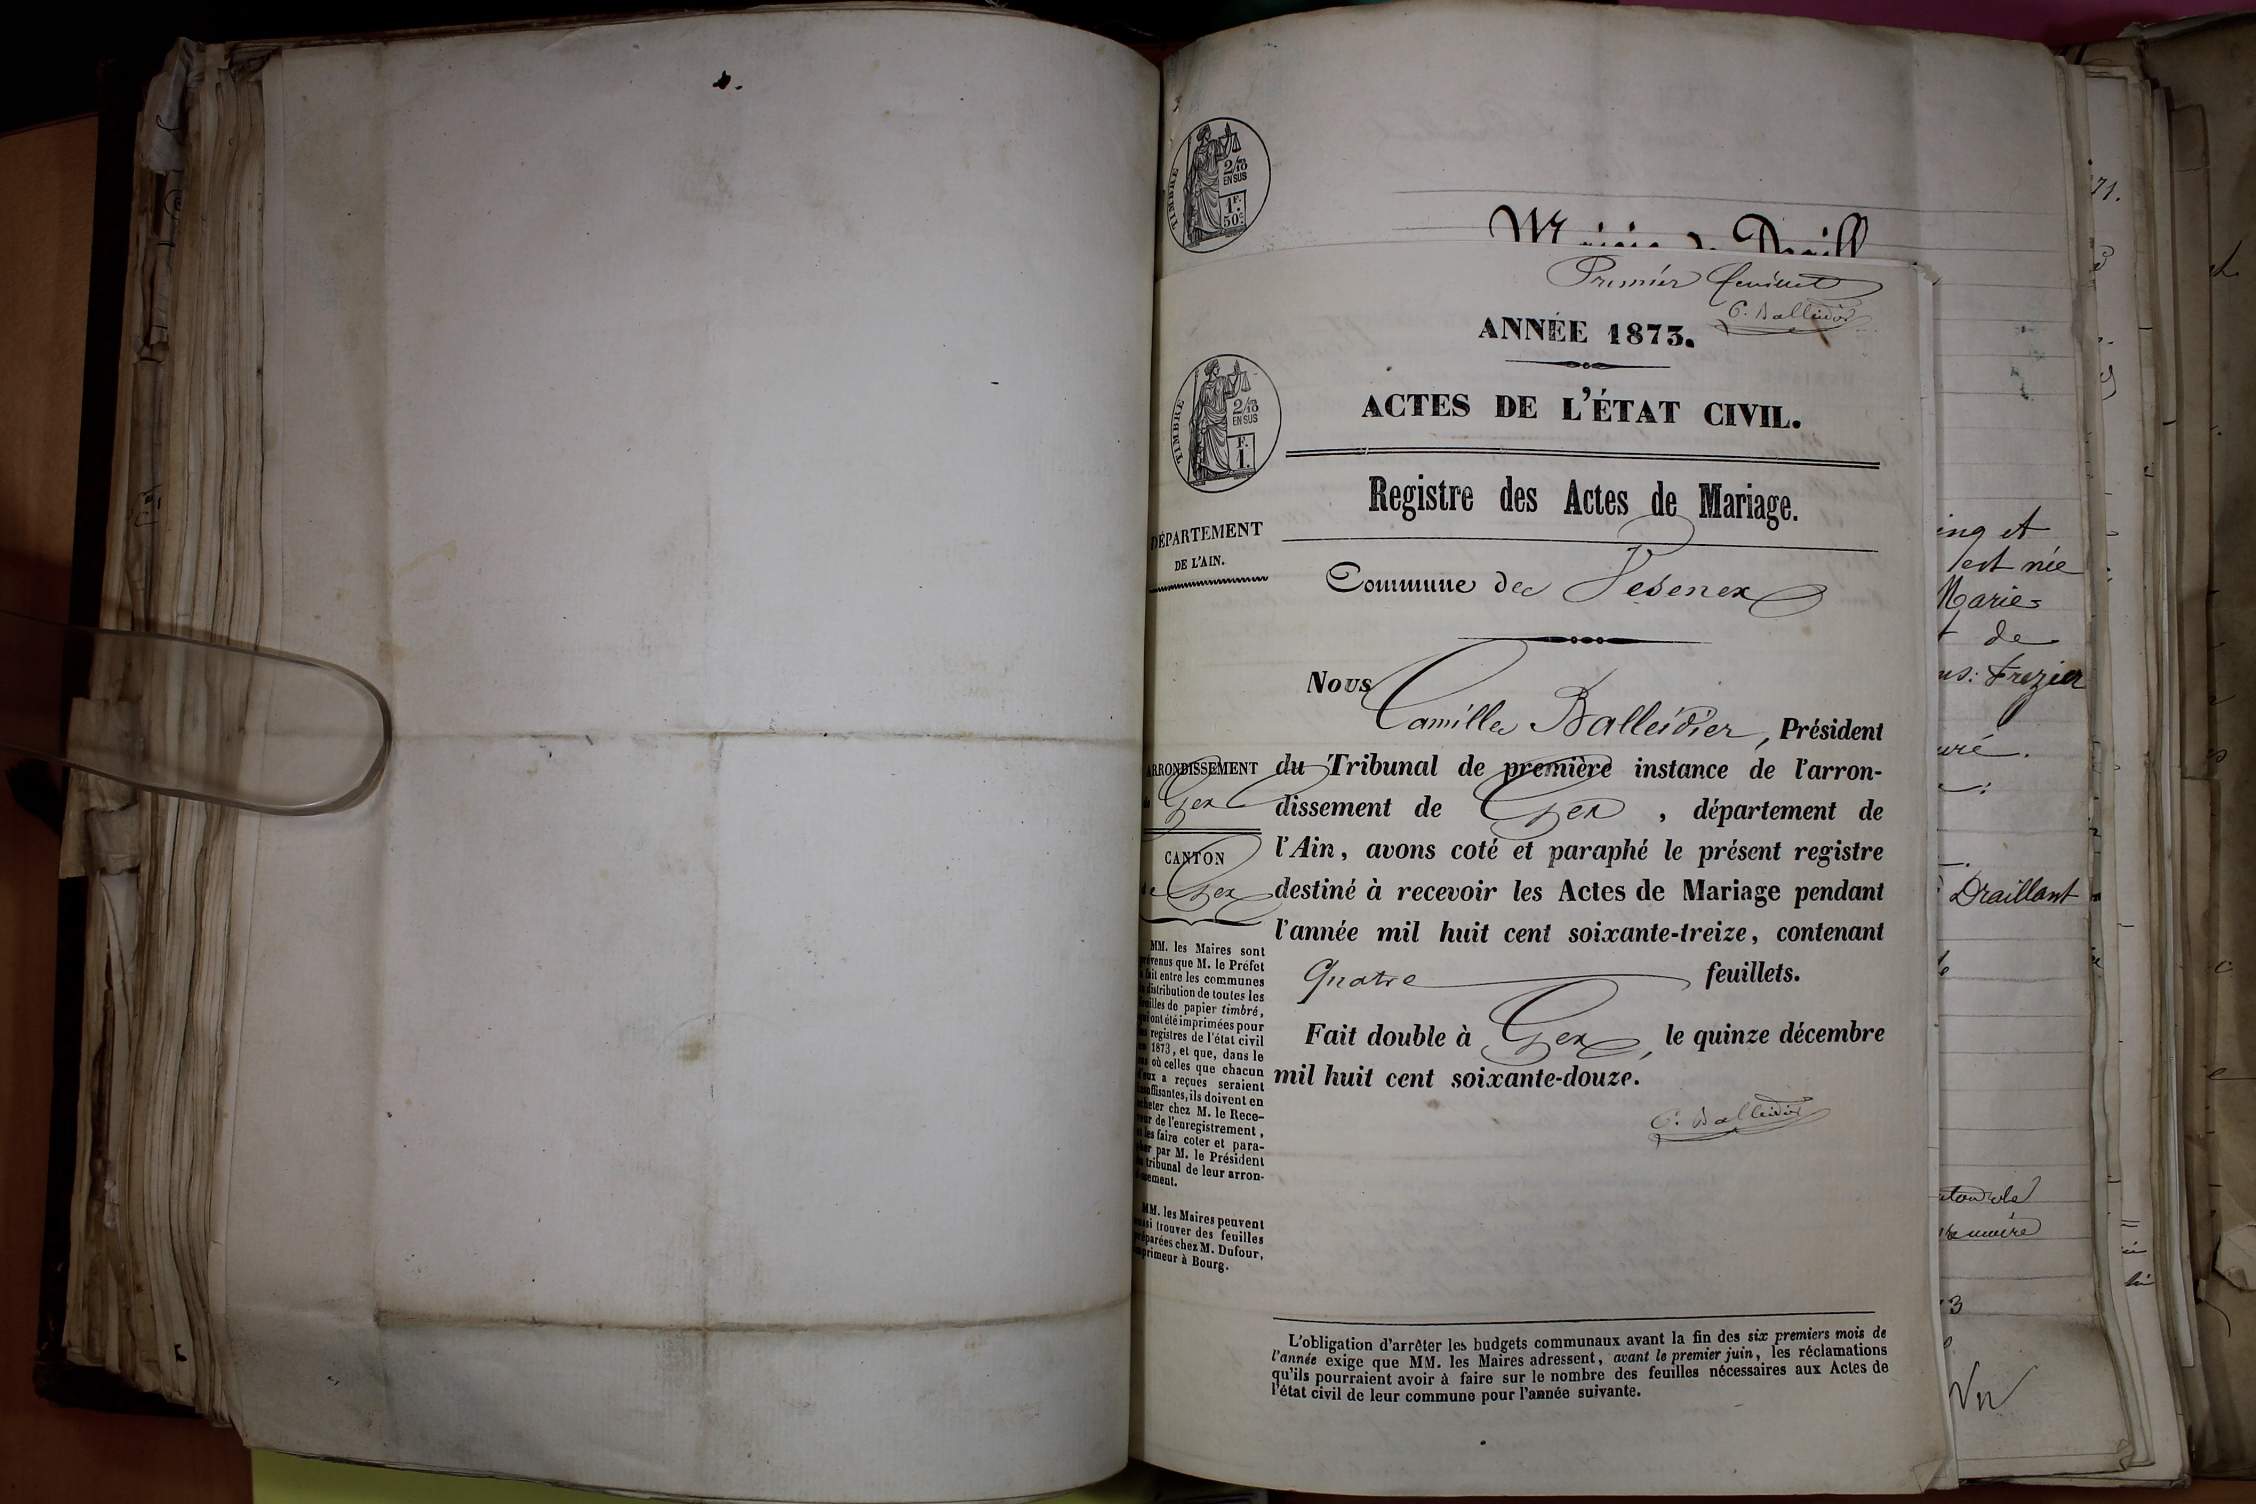 TIMBRE
2/10
EN SUS
1F.
50c
Mairie de Draill
Premier feuillet
C. Balleidier
ANNÉE 1873.
ACTES DE L'ÉTAT CIVIL.
TIMBRE
2/10
EN SUS
F.
1.
Registre des Actes de Mariage.
DÉPARTEMENT
DE L'AIN.
Commune de Vesenex
Nous
Camille Balleidier, Président
du Tribunal de première instance de l'arron-
dissement de Gex, département de
l'Ain, avons coté et paraphé le présent registre
destiné à recevoir les Actes de Mariage pendant
l'année mil huit cent soixante-treize, contenant
Quatre feuillets.
Fait double à Gex, le quinze décembre
mil huit cent soixante-douze.
C. Balleidier
ARRONDISSEMENT
Gex
CANTON
de Gex
MM. les Maires sont
prévenus que M. le Préfet
a fait entre les communes
la distribution de toutes les
feuilles de papier timbré,
qui ont été imprimées pour
les registres de l'état civil
en 1873, et que, dans le
cas où celles que chacun
d'eux a reçues seraient
insuffisantes, ils doivent en
acheter chez M. le Rece-
veur de l'enregistrement,
et les faire coter et para-
pher par M. le Président
du tribunal de leur arron-
dissement.
MM. les Maires peuvent
aussi trouver des feuilles
préparées chez M. Dufour,
imprimeur à Bourg.
L'obligation d'arrêter les budgets communaux avant la fin des six premiers mois de
l'année exige que MM. les Maires adressent, avant le premier juin, les réclamations
qu'ils pourraient avoir à faire sur le nombre des feuilles nécessaires aux Actes de
l'état civil de leur commune pour l'année suivante.
71.
ing et
est née
Marie
de
us: Frezier
uré.
Draillant
3